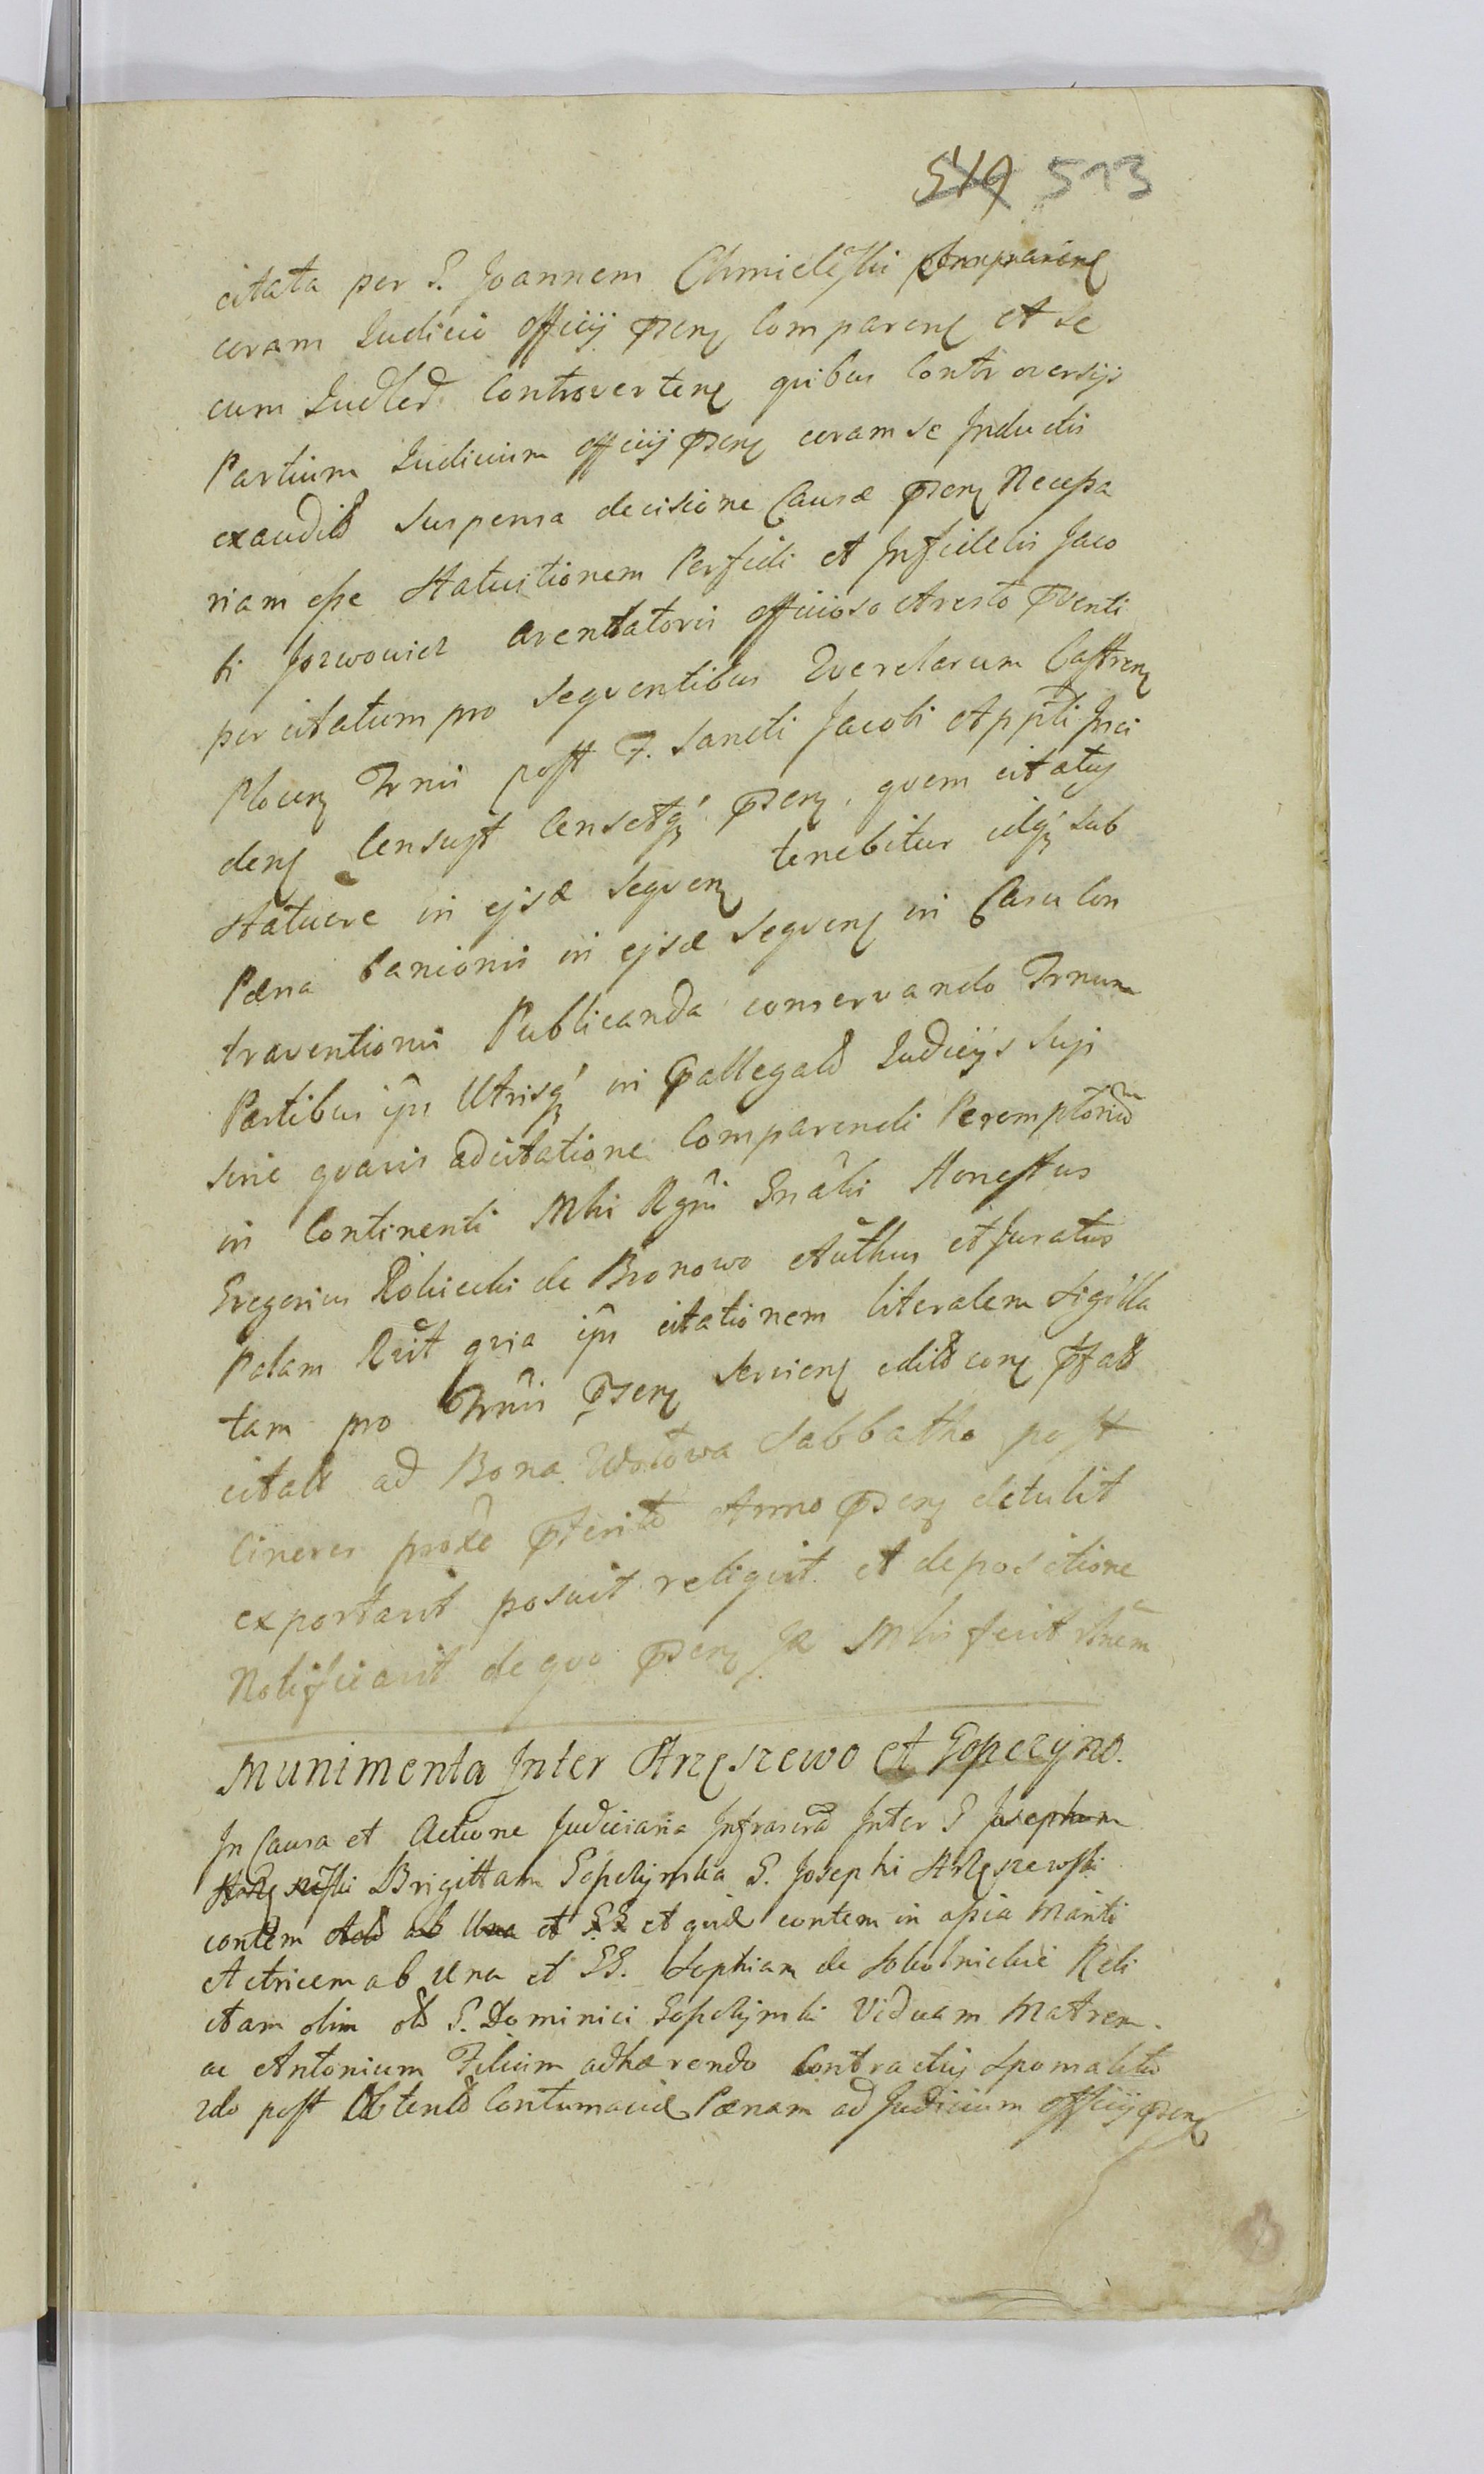 519 513
citata per G. Joannem Chmielẽski
coram Judicio officij pñseñ Compareñ et se
cum Judlr Controverteñ quibus Controversijs
Partium Judicium officij pñseñ coram se Inductis
exaudit suspensa decisione Causæ pñseñ Necessa
riam esse Statuitionem Perfidi et Infidelis Jaco
bi Jozwowicz arendatoris officioso Aresto pventi
per citatum pro seqventibus Qverelarum Castreñ
Ploceñ Trnis post F. Sancti Jacobi Appłi Inci
deñ Censuit Censetq́ pñseñ. qvem citatus
Statuere in ejsd seqveñ tenebitur idq́ sub
Pæna banionis in ejsd seqveñ in Casu Con
traventionis Publicanda conservando Trnum
Partibus ijs Utrisq́ in pallegatis Judicijs suis
sine qvavis adcitatione Comparendi Peremptorium
in Continenti Mhi Rgni Gnãlis Honestus
Gregorius Robiecki de Bronowo Authus et Juratus
Palam Rvit qvia ijs citationem literalem Sigilla
tam pro Trnis pñseñ servieñ edit coñ pfatt
citatt ad Bona Sabbatho post
Cineres proxe pterito Anno pñseñ detulit
exportavit posuit reliqvit et depositione
Notificavit de qvo pñseñ se Mhi fecit rlnem
Munimenta Inter Strzeszewo et Gopczyno.
In Causa et Actione Judiciaria Infrascrã Inter G Josephum
Strzeszẽski Brigittam Gopczynska G. Josephi Strzeszewski
contem Actt ab Una et G.G. et quidē contem in apia Mariti
Actricem ab una et GG. Sophiam de Sokolnickie Reli
ctam olim ol G. Dominici Gopczynski Viduam Matrem.
ac Antonium Filium adhærendo Contractuj Sponalitio
zdo post Obtent Contumaciæ Pænam ad Judicium officij pñseñ